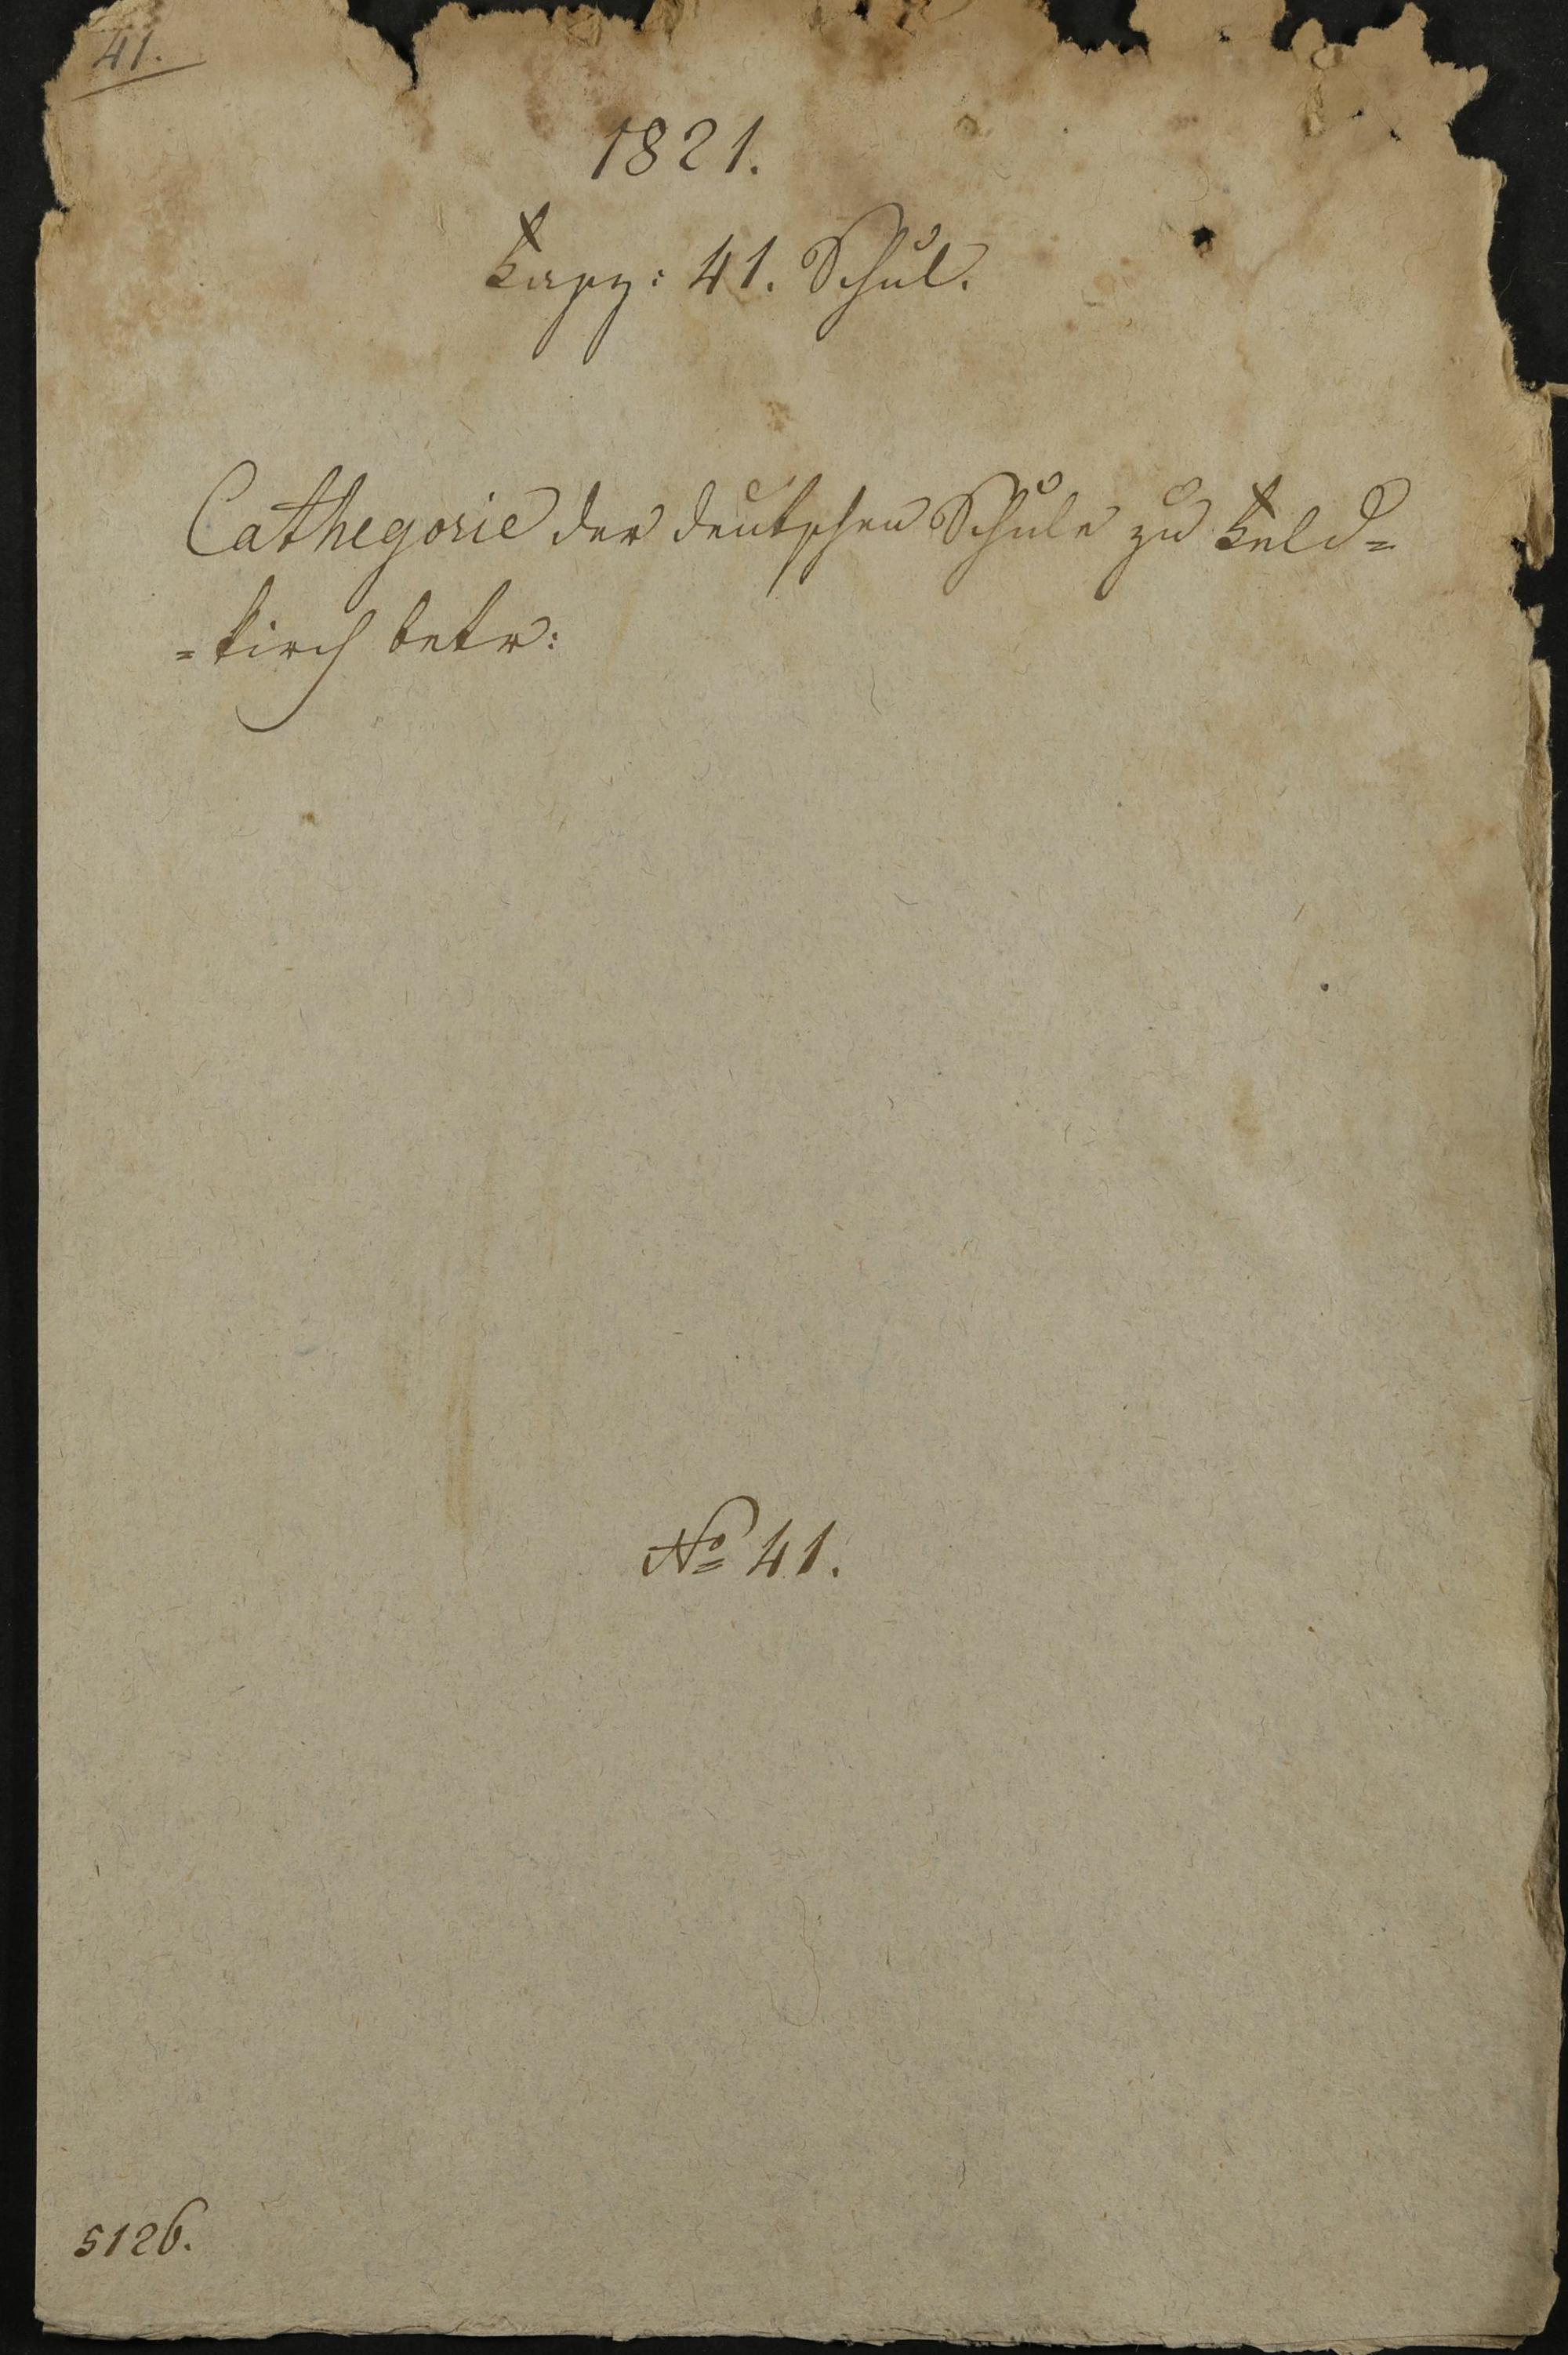 41.
1821.
Fasz: 41. Schul.
Cathegorie der deutschen Schule zu Feld=
=kirch betr:
No 41.
5126.